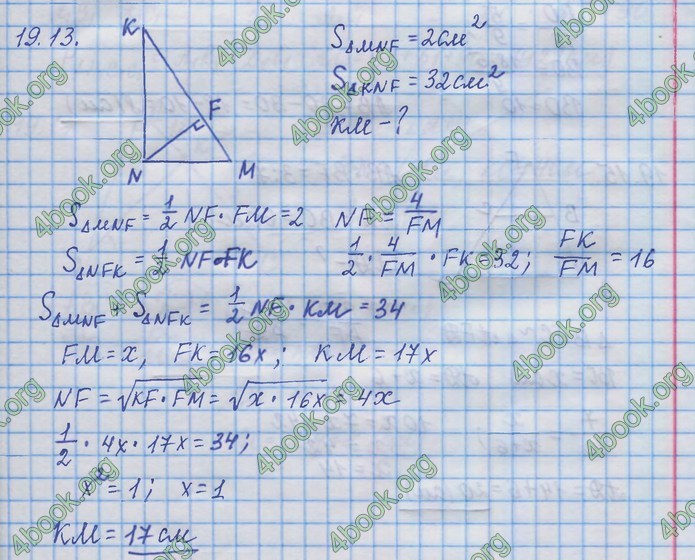 19.13.
K
F
N
M
S△MNF = 2см²
S△KNF = 32см²
KM - ?
S△MNF = 1/2 NF · FM = 2    NF = 4/FM
S△NFK = 1/2 NF · FK    1/2 · 4/FM · FK = 32; FK/FM = 16
S△MNF + S△NFK = 1/2 NF · KM = 34
FM = x, FK = 16x; KM = 17x
NF = √KF · FM = √x · 16x = 4x
1/2 · 4x · 17x = 34;
x² = 1; x = 1
KM = 17 см
4book.org